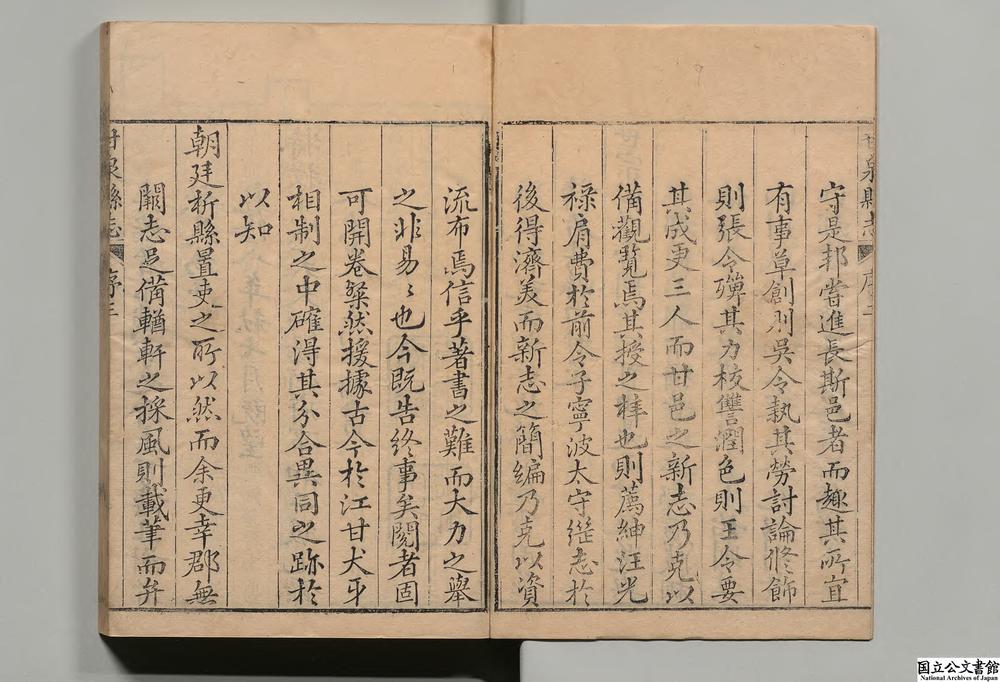 甘泉縣志 序二
守是邦嘗進長斯邑者而趣其所宜
有事草創則吳令執其勞討論脩飾
則張令殫其力校讐潤色則王令要
其成更三人而甘邑之新志乃克以
備觀覽焉其授之梓也則薦紳汪光
祿肩費於前令子寧波太守繼志於
後得濟美而新志之簡編乃克以資
流布焉信乎著書之難而大力之舉
之非易〻也今既告終事矣閱者固
可開卷粲然援據古今於江甘犬牙
相制之中確得其分合異同之跡於
以知
朝廷析縣置吏之所以然而余更幸郡無
闕志足備輶軒之採風則載筆而弁
甘泉縣志 序三
国立公文書館
National Archives of Japan